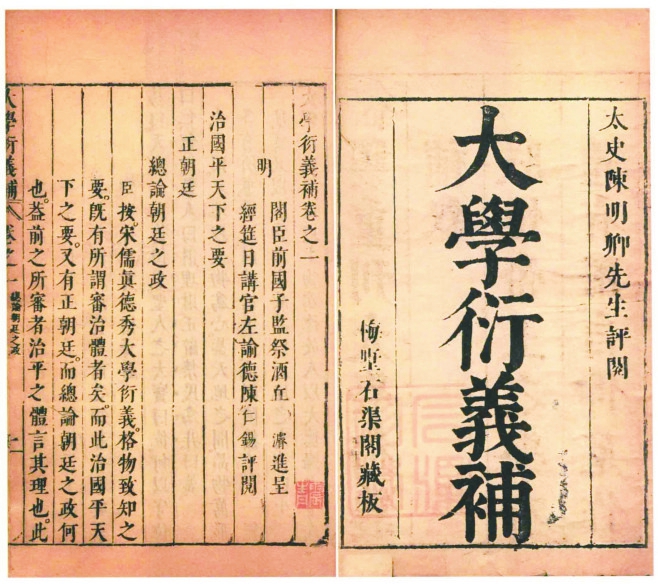 太史陳明卿先生評閱
大學衍義補
梅墅石渠閣藏板
大學衍義補卷之一
明
閣臣前國子監祭酒丘濬進呈
經筵日講官左諭德陳仁錫評閱
治國平天下之要
正朝廷
總論朝廷之政
臣按宋儒真德秀大學衍義。格物致知之
要。既有所謂審治體者矣。而此治國平天
下之要。又有正朝廷。而總論朝廷之政何
也。葢前之所審者治平之體言其理也。此
大學衍義補 卷之一 總論朝廷之政 一